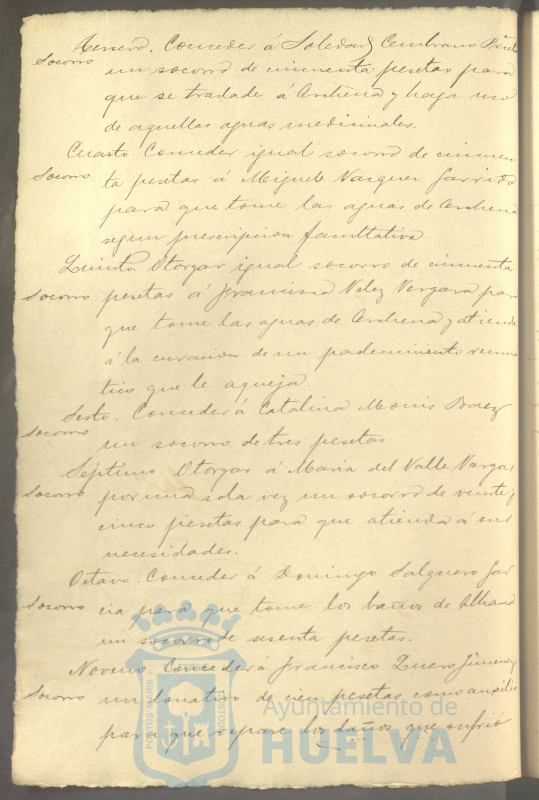 Tercero. Conceder á Soledad Cembrano
Socorro
un socorro de cincuenta pesetas para
que se traslade á Archena y haga uso
de aquellas aguas medicinales.
Cuarto. Conceder igual socorro de cincuen
Socorro
ta pesetas á Miguel Vazquez Garrido
para que tome las aguas de Archena
segun prescripcion facultativa
Quinto. Otorgar igual socorro de cincuenta
Socorro
pesetas á Francisca Velez Vergara para
que tome las aguas de Archena y atienda
á la curacion de un padecimiento reuma
tico que le aqueja.
Sesto. Conceder á Catalina Monis Baez
Socorro
un socorro de tres pesetas
Septimo. Otorgar á Maria del Valle Vargas
Socorro
por una sola vez un socorro de veinte y
cinco pesetas para que atienda á sus
necesidades.
Octavo. Conceder á Domingo Salguero Gar
Socorro
cia para que tome los baños de Alhama
un socorro de sesenta pesetas.
Noveno. Conceder á Francisco Quero Jimenez
Socorro
un donativo de cien pesetas como auxilio
para que repare los daños que sufrió
PORTUS MARIS
CUSTODIA
Ayuntamiento de
HUELVA